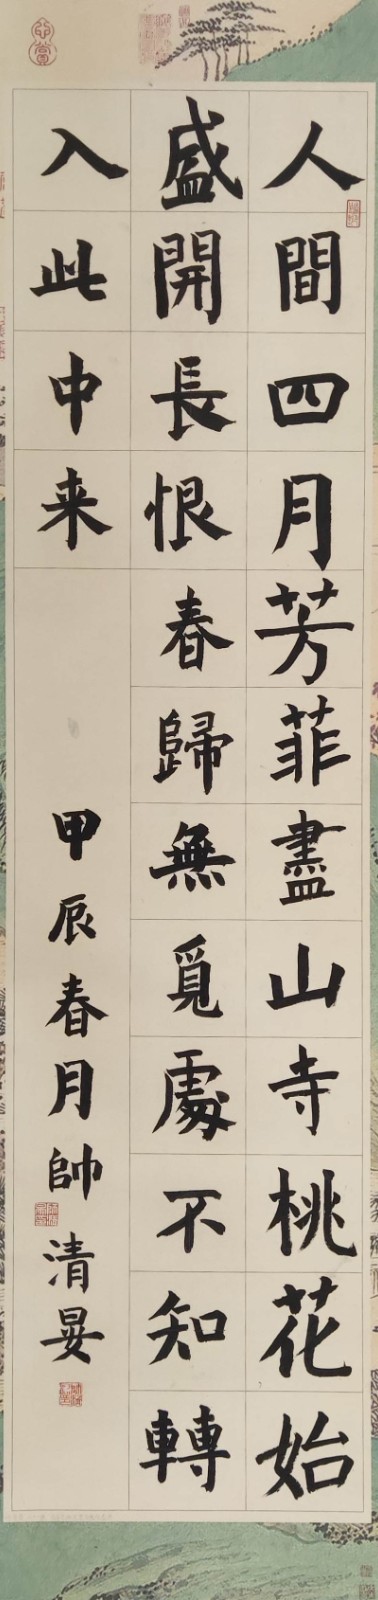 人間四月芳菲盡山寺桃花始
盛開長恨春歸無覓處不知轉
入此中来
甲辰春月帥清晏